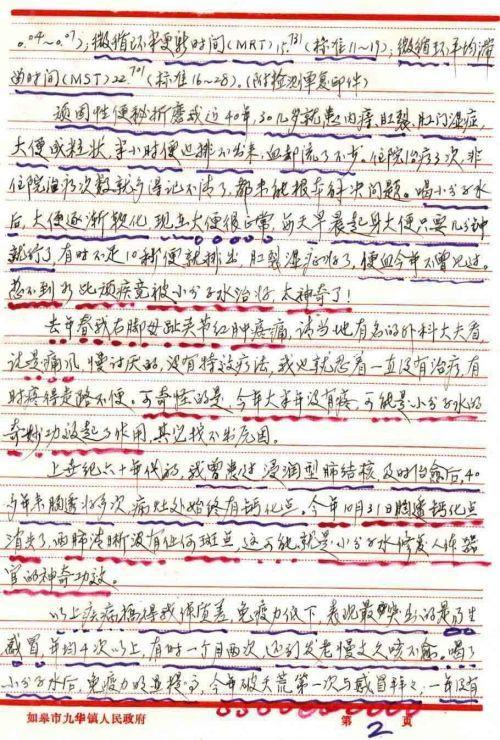 0.04~0.07);微循环半更新时间(MRT)15.731(标准11~19),微循环平均滞
留时间(MST)22.701(标准16~28)。(附检测单复印件)
顽固性便秘折磨我近40年,30几岁就患内痔,肛裂,肛门湿症,
大便成粒状,半小时便也排不出来,血却流了不少。住院治疗3次,非
住院治疗次数就多得记不清了,都未能根本解决问题。喝小分子水
后,大便逐渐软化,现在大便很正常,每天早晨起身大便只要几分钟
就行了,有时不足10秒便就排出,肛裂湿症好了,便血今年不曾见过。
想不到为此顽疾竟被小分子水治好,太神奇了!
去年春我右脚母趾关节红肿疼痛,请当地有名的外科大夫看,
说是痛风,慢讨厌的,没有特效疗法,我也就忍着一直没有治疗,有
时疼得走路不便。可奇怪的是,今年大半年没有疼,可能是小分子水的
奇妙功效起了作用,其它找不出原因。
上世纪六十年代初,我曾患过浸润型肺结核,及时治愈后,40
多年来胸透好多次,病灶处始终有钙化点。今年10月31日胸透钙化点
消失了,两肺清晰没有任何斑点,这可能就是小分子水修复人体器
官的神奇功效。
以上疾病搞得我体质差,免疫力低下,表现最突出的是易生
感冒,年均4次以上,有时一个月两次,还到发老慢支久咳不愈。喝了
小分子水后,免疫力迅速提高,今年破天荒第一次与感冒拜拜,一年没有
如皋市九华镇人民政府 第2页